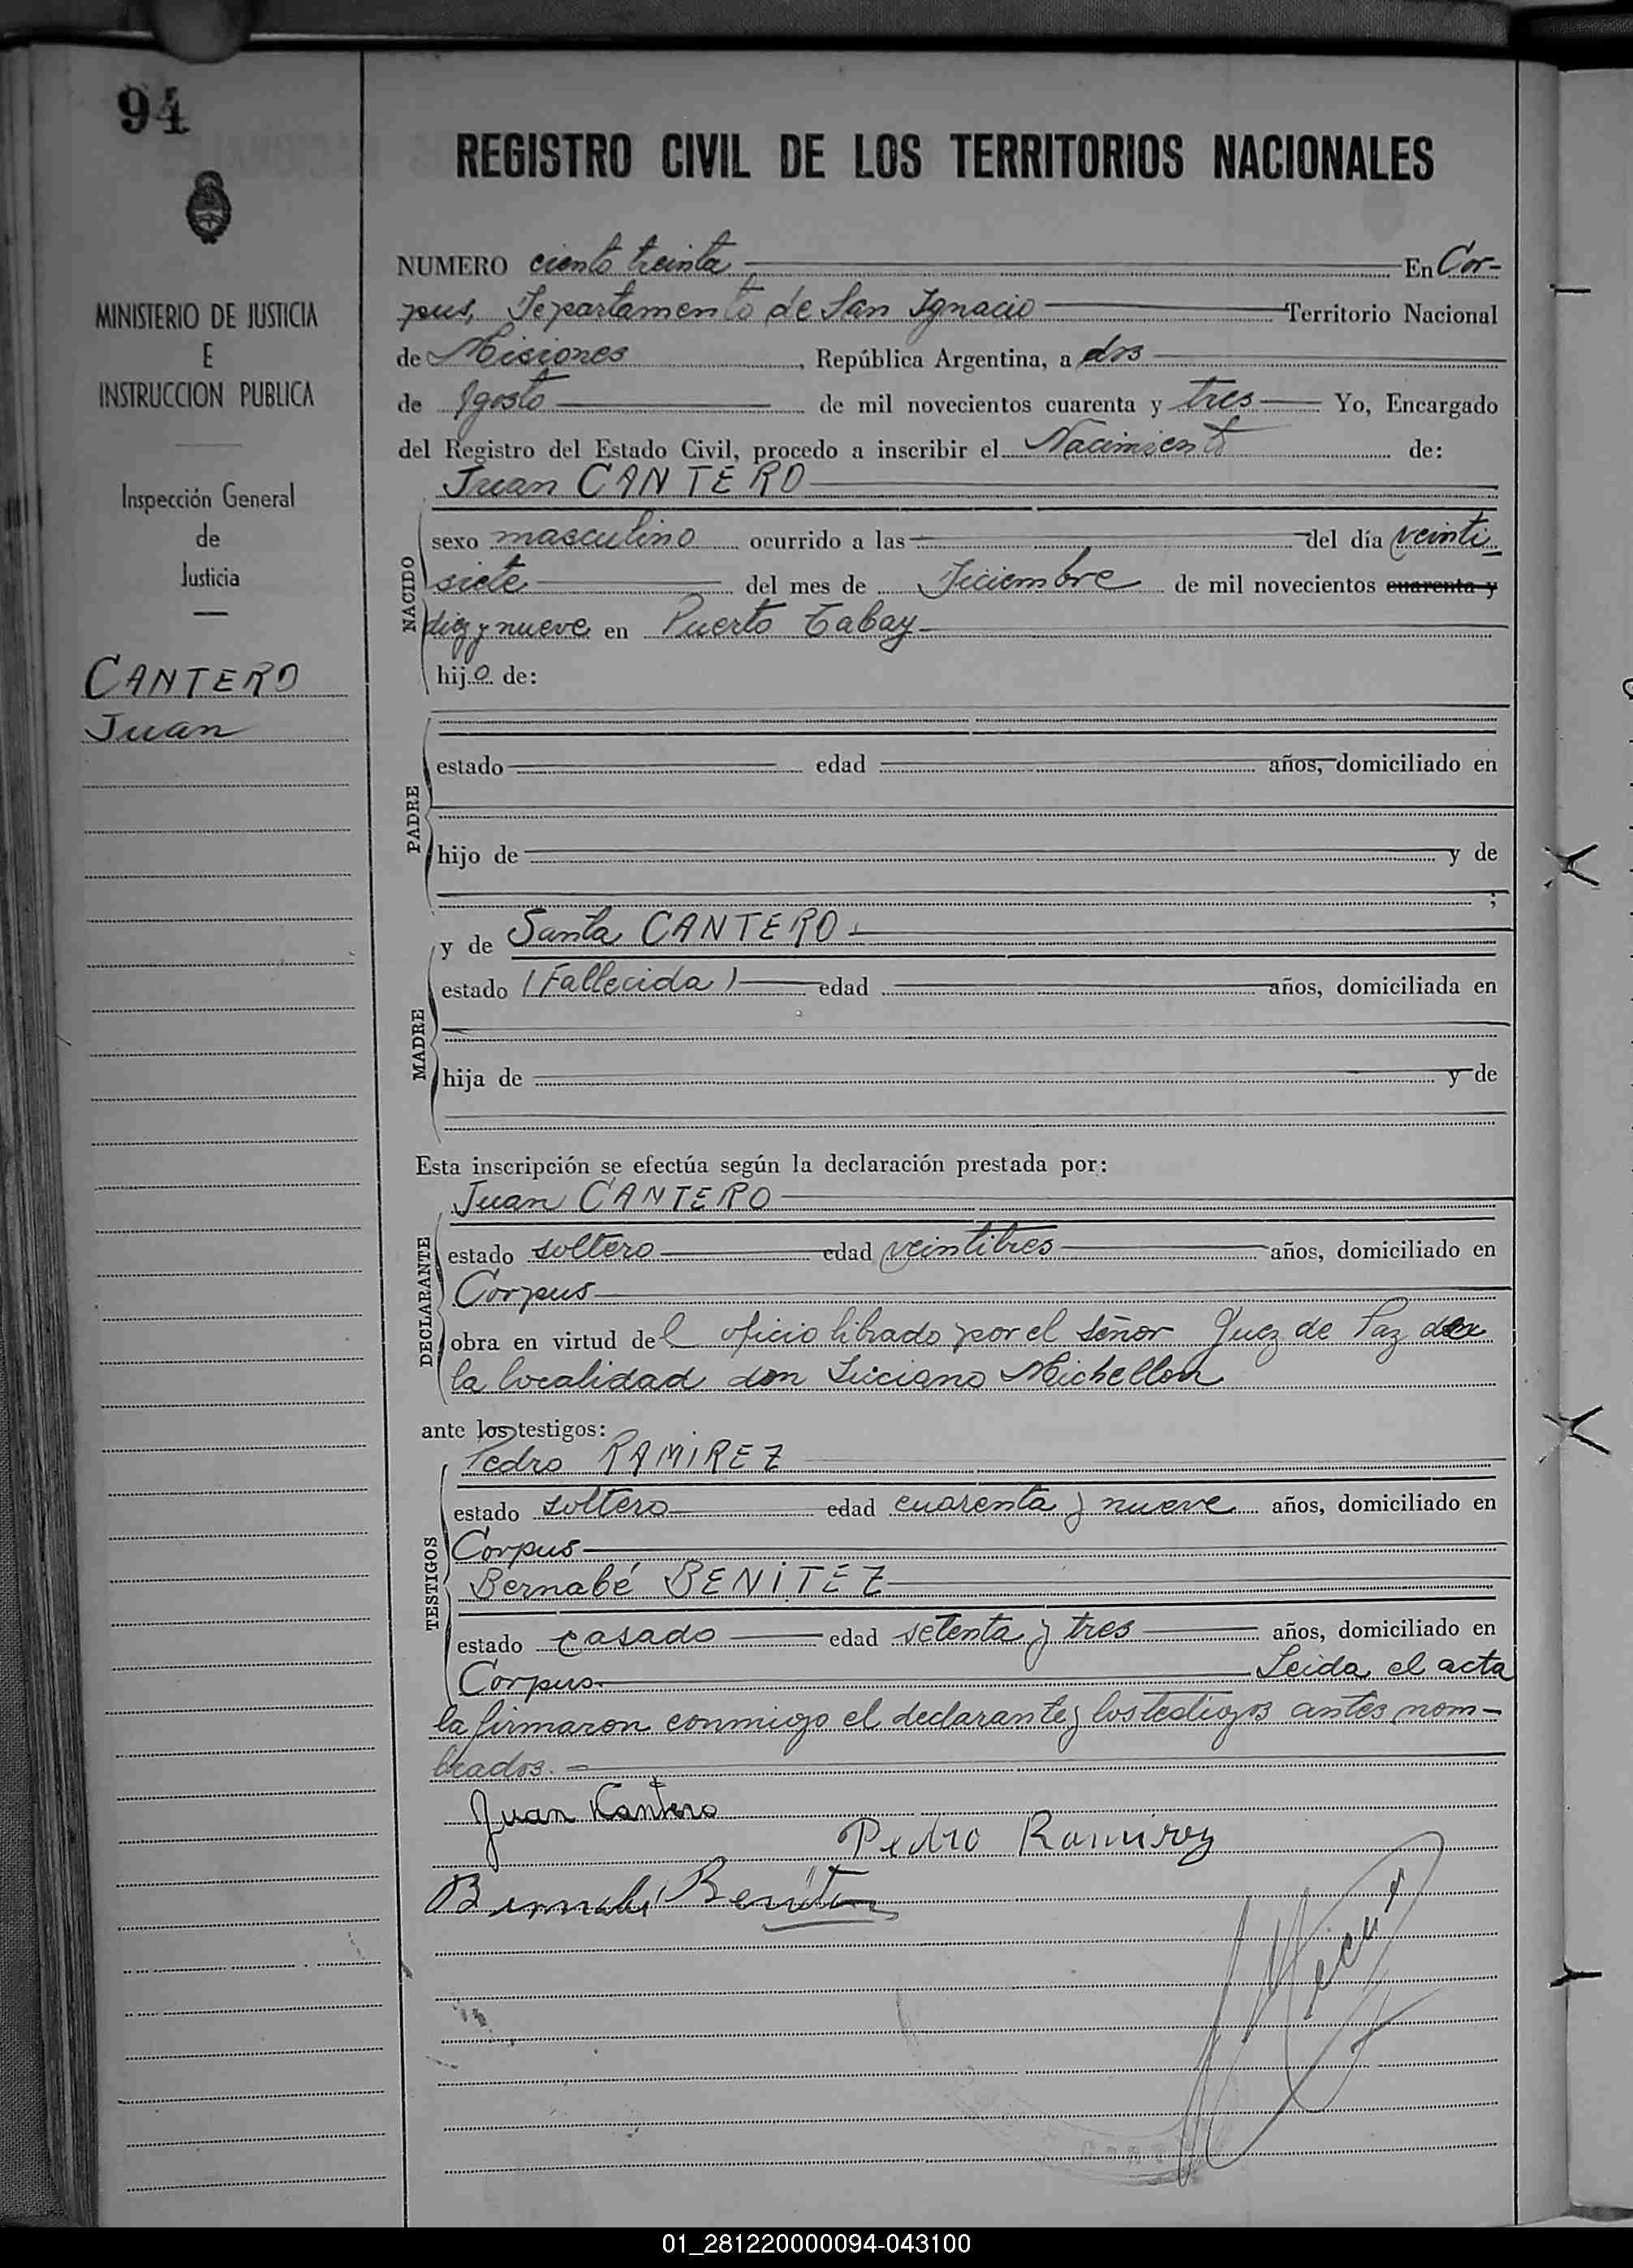 94
REGISTRO CIVIL DE LOS TERRITORIOS NACIONALES
MINISTERIO DE JUSTICIA
E
INSTRUCCION PUBLICA
Inspección General
de
Justicia
CANTERO
Juan
NUMERO ciento treinta En Cor-
pus, Departamento de San Ignacio Territorio Nacional
de Misiones, República Argentina, a dos
de Agosto de mil novecientos cuarenta y tres Yo, Encargado
del Registro del Estado Civil, procedo a inscribir el Nacimiento de:
Juan CANTERO
NACIDO
sexo masculino ocurrido a las del día veinti
siete del mes de Diciembre de mil novecientos cuarenta y
diez y nueve en Puerto Tabay
hijo de:
PADRE
estado edad años, domiciliado en
hijo de y de
;
MADRE
y de Santa CANTERO
estado (Fallecida) edad años, domiciliada en
hija de y de
Esta inscripción se efectúa según la declaración prestada por:
DECLARANTE
Juan CANTERO
estado soltero edad veintitres años, domiciliado en
Corpus
obra en virtud del oficio librado por el señor Juez de Paz de
la localidad don Luciano Michellon
ante los testigos:
TESTIGOS
Pedro RAMIREZ
estado soltero edad cuarenta y nueve años, domiciliado en
Corpus
Bernabé BENITEZ
estado casado edad setenta y tres años, domiciliado en
Corpus Leida el acta
la firmaron conmigo el declarante y los testigos antes nom-
brados.-
Juan Cantero
Pedro Ramirez
Bernabe Benitez
01_281220000094-043100